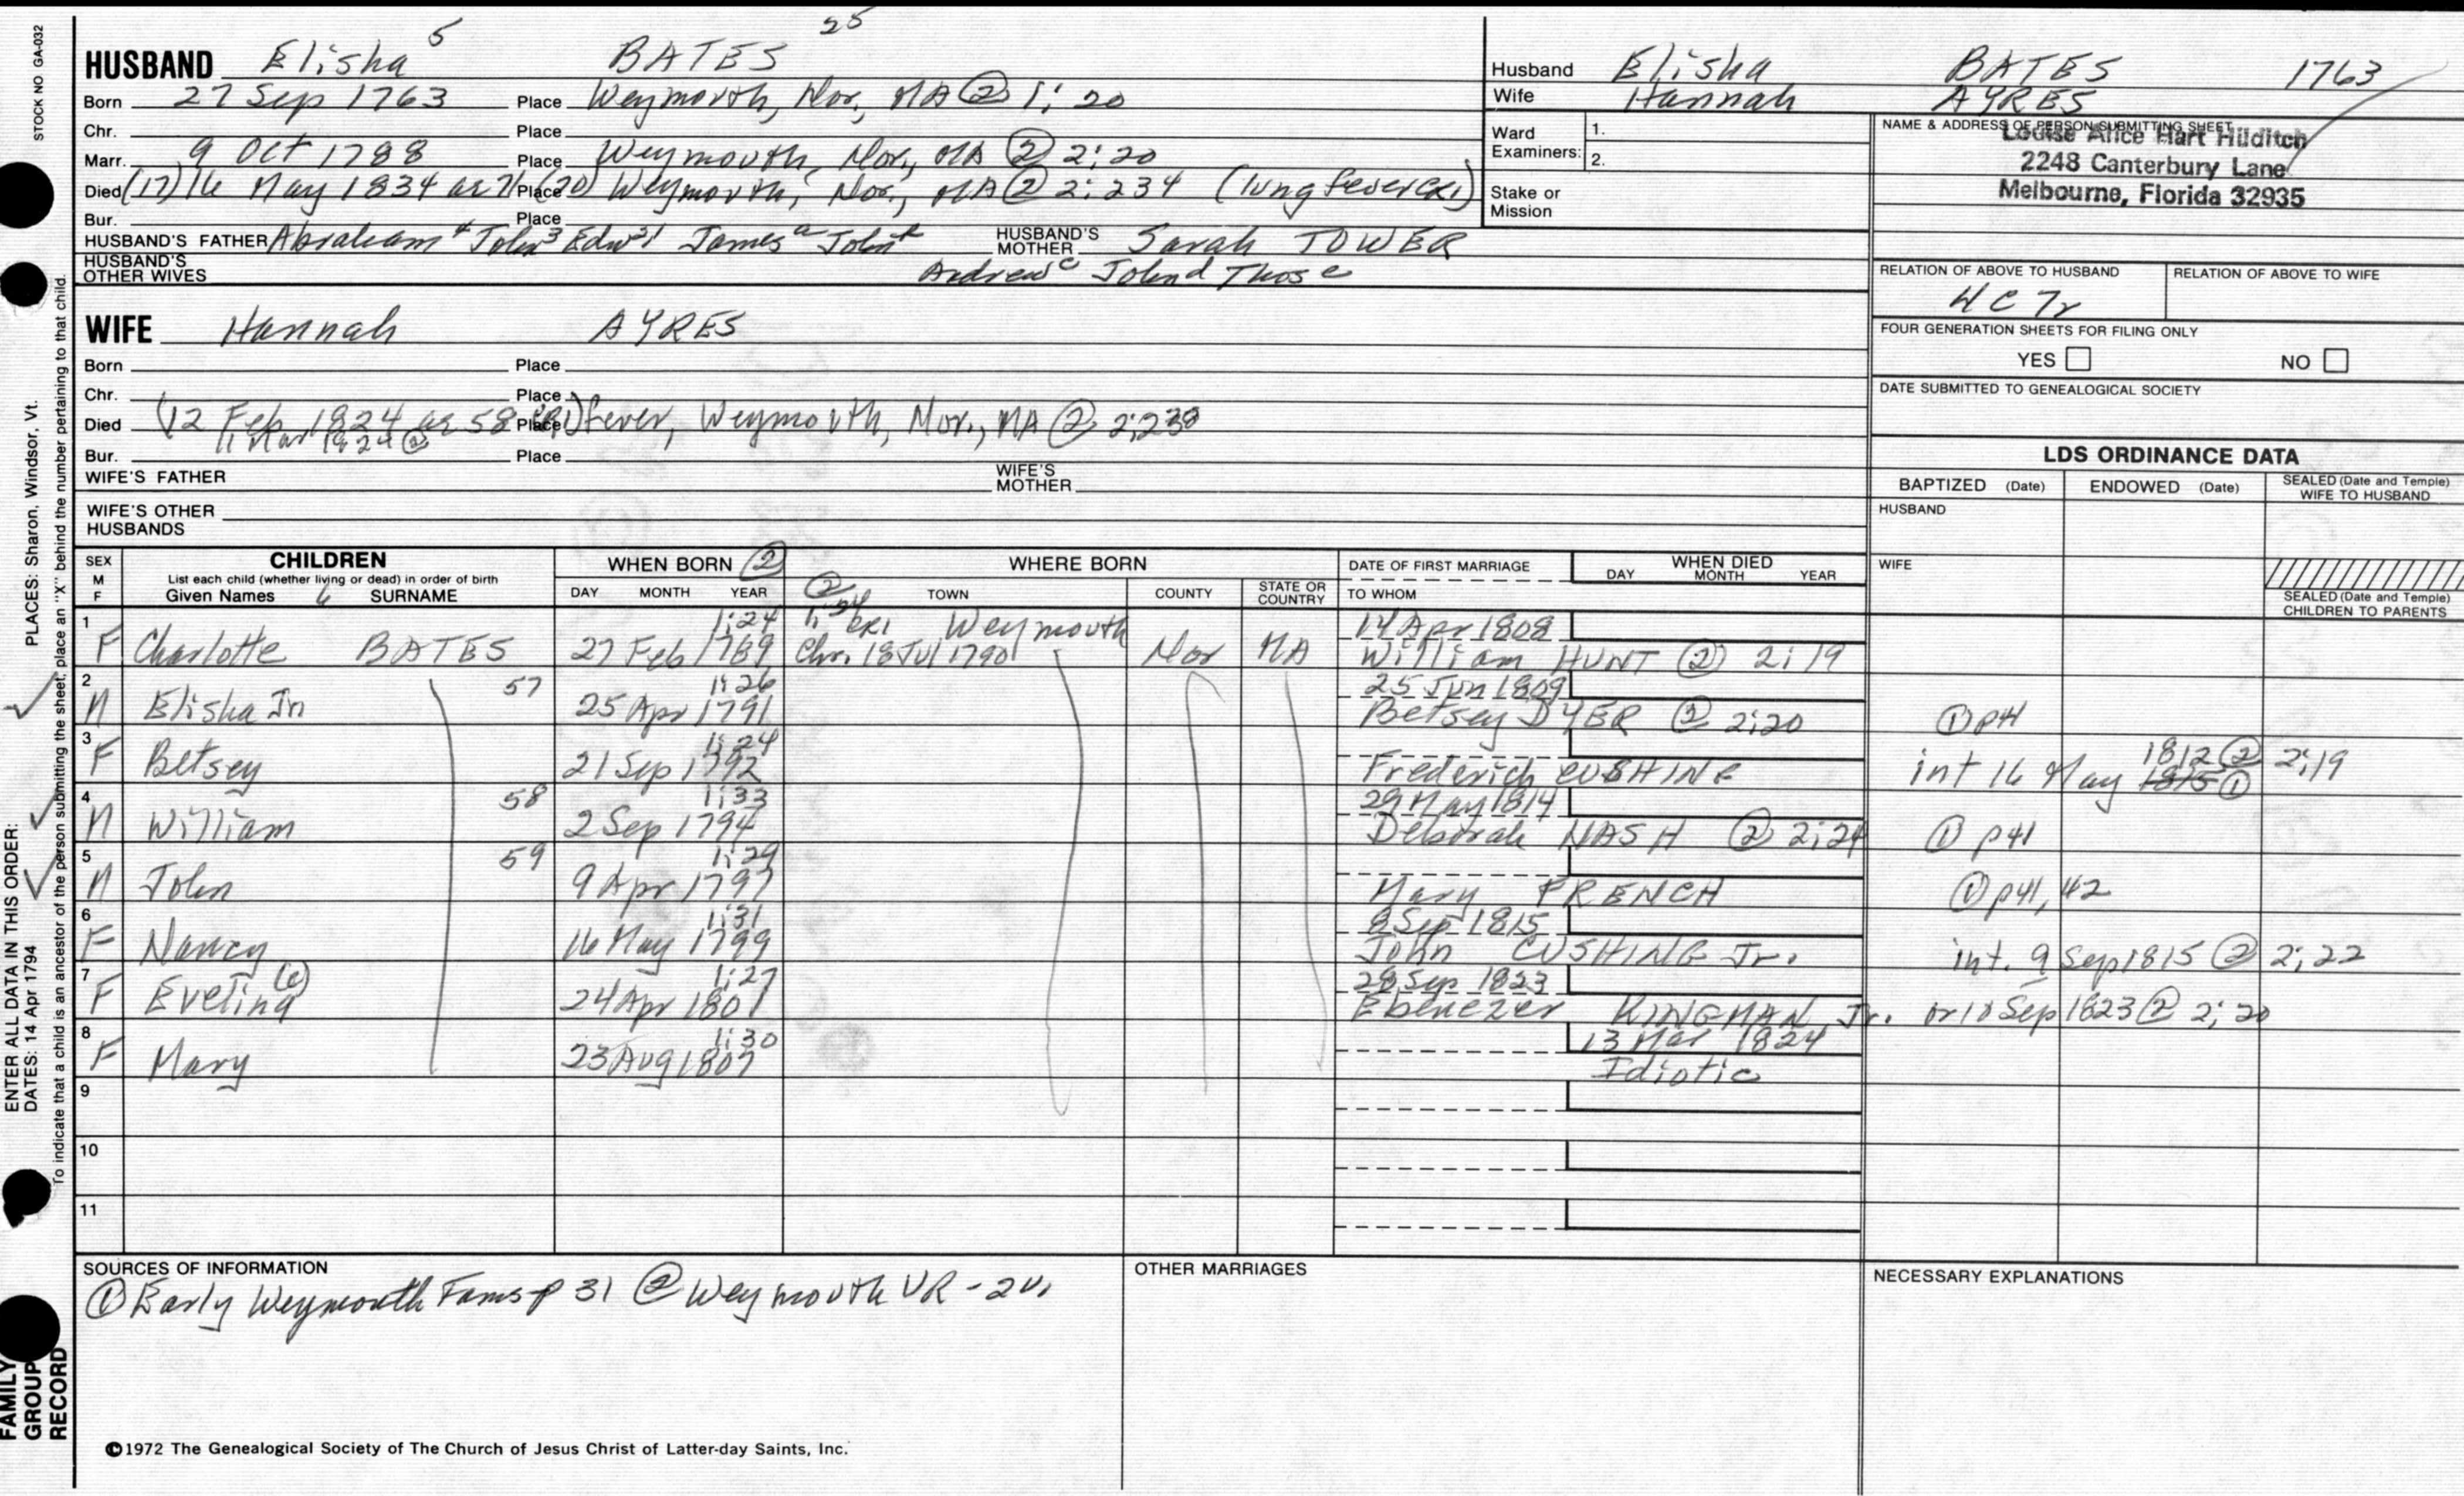 STOCK NO GA-032
PLACES: Sharon, Windsor, Vt.
ENTER ALL DATA IN THIS ORDER:
DATES: 14 Apr 1794
To indicate that a child is an ancestor of the person submitting the sheet, place an "X" behind the number pertaining to that child.
FAMILY GROUP RECORD
25
HUSBAND Elisha 5 BATES
Born 27 Sep 1763 Place Weymouth, Nor, MA ② 1:20
Chr. Place
Marr. 9 Oct 1788 Place Weymouth, Nor, MA ② 2:20
Died (17) 16 May 1834 ae 71 Place (20) Weymouth, Nor., MA ② 2:234 (lung fever CR1)
Bur. Place
HUSBAND'S FATHER Abraham 4 John 3 Edw 1 James a John HUSBAND'S MOTHER Sarah TOWER
HUSBAND'S OTHER WIVES Andrew c John d Thos e
Husband Elisha BATES 1763
Wife Hannah AYRES
Ward Examiners: 1.
2.
Stake or Mission
NAME & ADDRESS OF PERSON SUBMITTING SHEET
Louise Alice Hart Hilditch
2248 Canterbury Lane
Melbourne, Florida 32935
RELATION OF ABOVE TO HUSBAND RELATION OF ABOVE TO WIFE
FOUR GENERATION SHEETS FOR FILING ONLY
YES NO
DATE SUBMITTED TO GENEALOGICAL SOCIETY
WIFE Hannah AYRES
Born Place
Chr. Place
Died (12 Feb 1824 ae 58 Place (CR1) fever, Weymouth, Nor., MA ② 2:238
11 Mar 1824 ②
Bur. Place
WIFE'S FATHER WIFE'S MOTHER
WIFE'S OTHER HUSBANDS
LDS ORDINANCE DATA
BAPTIZED (Date) ENDOWED (Date) SEALED (Date and Temple) WIFE TO HUSBAND
HUSBAND
WIFE
SEALED (Date and Temple) CHILDREN TO PARENTS
SEX M F CHILDREN List each child (whether living or dead) in order of birth Given Names 6 SURNAME
WHEN BORN ② DAY MONTH YEAR
WHERE BORN ② TOWN COUNTY STATE OR COUNTRY
DATE OF FIRST MARRIAGE TO WHOM
WHEN DIED DAY MONTH YEAR
1:24 1:24 CR1 Weymouth 14 Apr 1808
1 F Charlotte BATES 27 Feb 1789 Chr. 18 Jul 1790 Nor MA William HUNT ② 2:19
57 1:26 25 Jun 1809
2 M Elisha Jr 25 Apr 1791 Betsey DYER ② 2:20 ① p41
1:24
3 F Betsey 21 Sep 1792 Frederich CUSHING int 16 May 1812 ② 1815 ① 2:19
58 1:33 29 May 1814
4 M William 2 Sep 1794 Deborah NASH ② 2:24 ① p41
59 1:29
5 M John 9 Apr 1797 Mary FRENCH ① p41, 42
1:31 8 Sep 1815
6 F Nancy 16 May 1799 John CUSHING Jr. int. 9 Sep 1815 ② 2:22
(e) 1:27 28 Sep 1823
7 F Evelina 24 Apr 1801 Ebenezer KINGMAN Jr. or 18 Sep 1823 ② 2:20
1:30 13 Mar 1824
8 F Mary 23 Aug 1807 Idiotic
9
10
11
SOURCES OF INFORMATION
① Early Weymouth Fams p 31 ② Weymouth VR - 2v.
OTHER MARRIAGES
NECESSARY EXPLANATIONS
©1972 The Genealogical Society of The Church of Jesus Christ of Latter-day Saints, Inc.